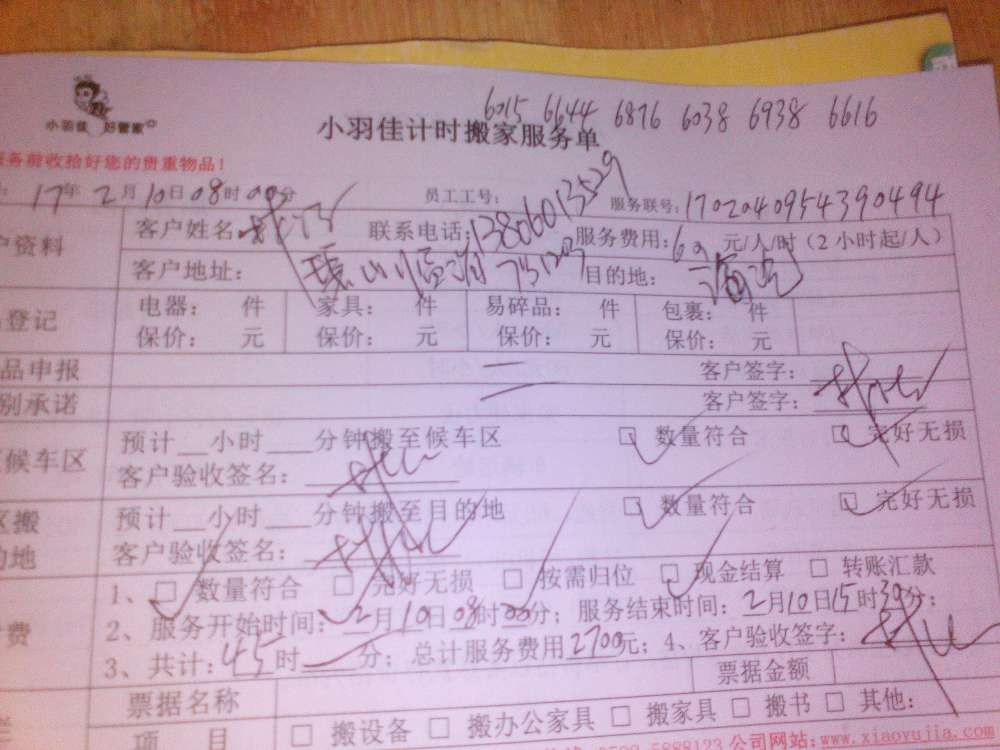 6015 6644 6876 6038 6938 6616
小羽佳 好管家
小羽佳计时搬家服务单
服务前收拾好您的贵重物品！
17年2月10日08时00分 员工工号： 服务联号：1702040954390494
户资料 客户姓名： 联系电话：13806013529 服务费用：60元/人/时（2小时起/人）
客户地址： 目的地：
登记 电器： 件 家具： 件 易碎品： 件 包裹： 件
保价： 元 保价： 元 保价： 元 保价： 元
品申报 客户签字：
别承诺 客户签字：
候车区 预计__小时___分钟搬至候车区 □ 数量符合 □ 完好无损
客户验收签名：
区搬 预计__小时___分钟搬至目的地 □ 数量符合 □ 完好无损
的地 客户验收签名：
1、□ 数量符合 □ 完好无损 □ 按需归位 □ 现金结算 □ 转账汇款
费 2、服务开始时间：2月10日08时00分；服务结束时间：2月10日15时30分；
3、共计：45时 分；总计服务费用2700元；4、客户验收签字：
票据名称 票据金额
项 目 □ 搬设备 □ 搬办公家具 □ 搬家具 □ 搬书 □ 其他：
5888123 公司网站：www.xiaoyujia.com